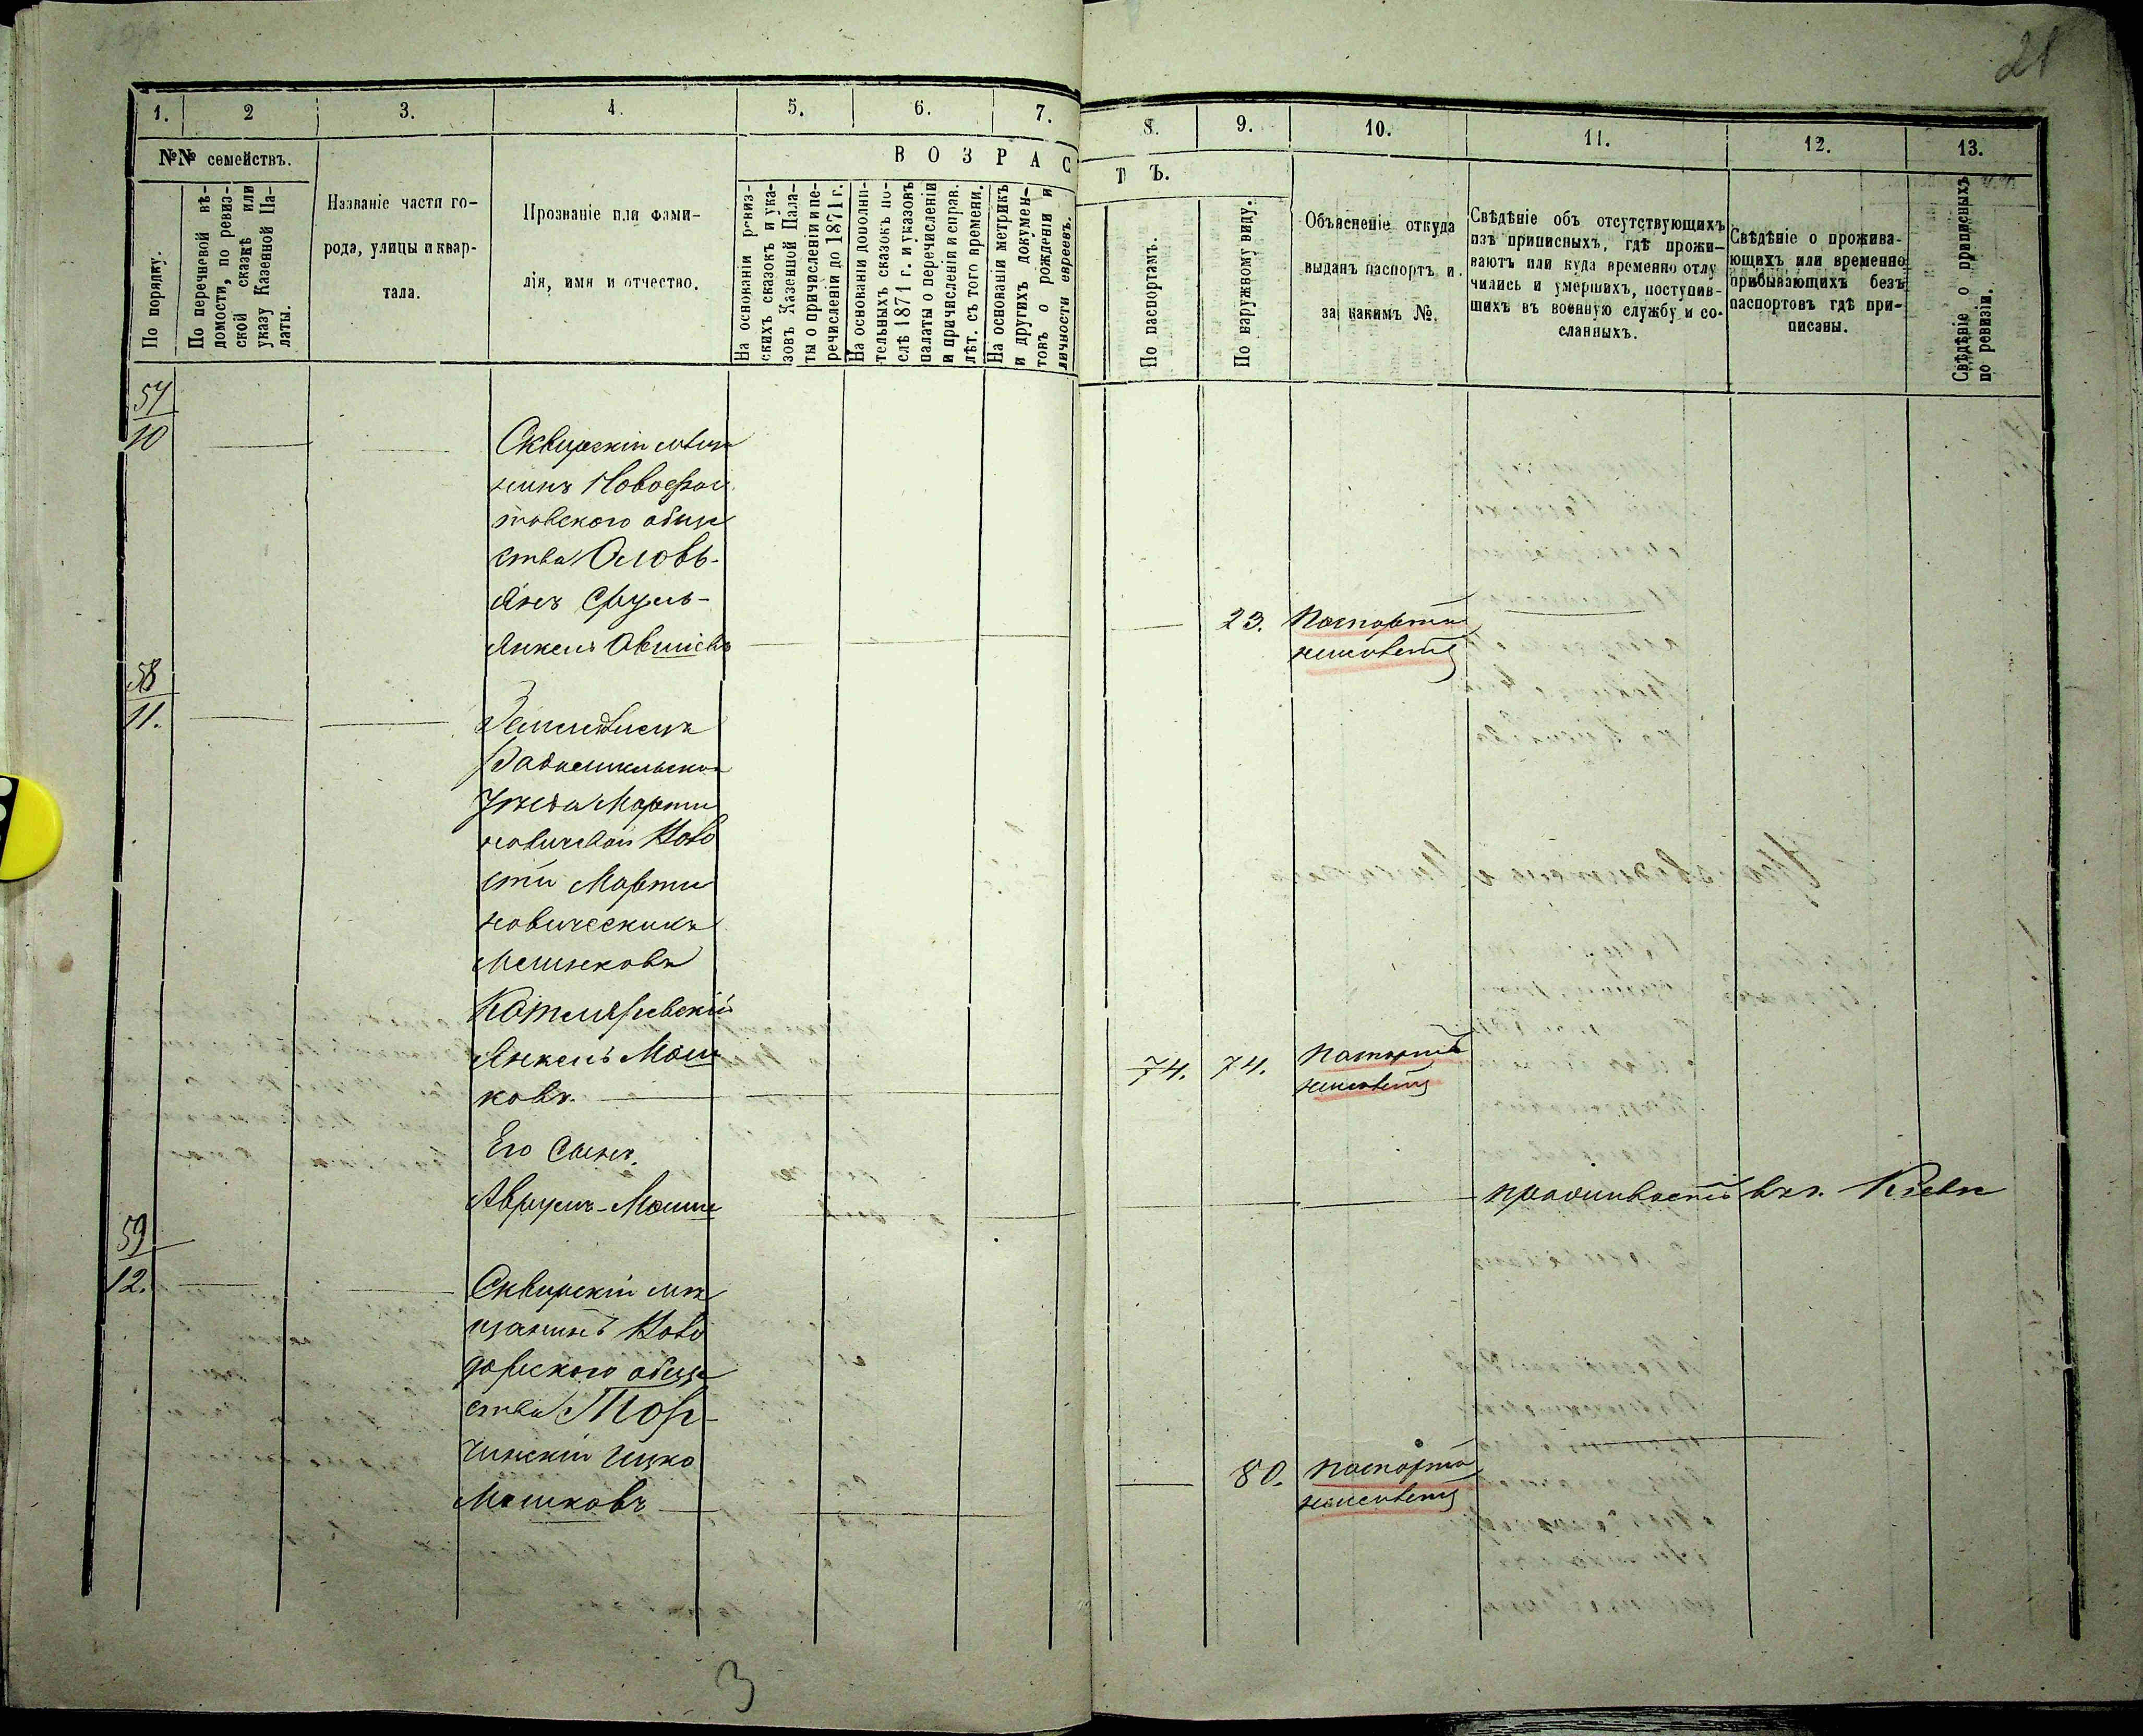 21
1. 2 3. 4. 5. 6. 7. 8. 9. 10. 11. 12. 13.
№№ семействъ.
ВОЗРАСТЪ.
По порядку.
По перечневой вѣ-
домости, по ревиз-
ской сказкѣ или
указу Казенной Па-
латы.
Названіе части го-
рода, улицы и квар-
тала.
Прозваніе или фами-
лія, имя и отчество.
На основаніи ревиз-
скихъ сказокъ и ука-
зовъ Казенной Пала-
ты о причисленіи и пе-
речисленіи до 1871 г.
На основаніи дополни-
тельныхъ сказокъ по-
слѣ 1871 г. и указовъ
палаты о перечисленіи
и причисленіи и справ.
лѣт. съ того времени.
На основаніи метрикъ
и другихъ докумен-
товъ о рожденіи и
личности евреевъ.
По паспортамъ.
По наружному виду.
Объясненіе откуда
выданъ паспортъ и
за какимъ №.
Свѣдѣніе объ отсутствующихъ
изъ приписныхъ, гдѣ прожи-
ваютъ или куда временно отлу
чились и умершихъ, поступив-
шихъ въ военную службу и со-
сланныхъ.
Свѣдѣніе о прожива-
ющихъ или временно
прибывающихъ безъ
паспортовъ гдѣ при-
писаны.
Свѣдѣніе о приписныхъ
по ревизіи.
57
10
Сквирскій мѣща
нинъ Новофас
товскаго обще
ства Оловь-
янъ Сруль-
Янкель Овшіевъ
23. Паспорта
неимѣетъ
58
11.
Земледѣлецъ
Радомысльскаго
уѣзда Марти
новичской Воло
сти Марти
новическихъ
Мешковъ
Котляревскій
Янкель Мош
ковъ.
74. 74. паспорта
неимѣетъ
Его Сынъ
Аврумъ-Мошко
проживаетъ въ г. Кіевѣ
59
12.
Сквирскій мѣ
щанинъ Ново
дарскаго обще
ства Тор-
чинскій Ицко
Мошковъ
80. паспорта
неимѣетъ
3